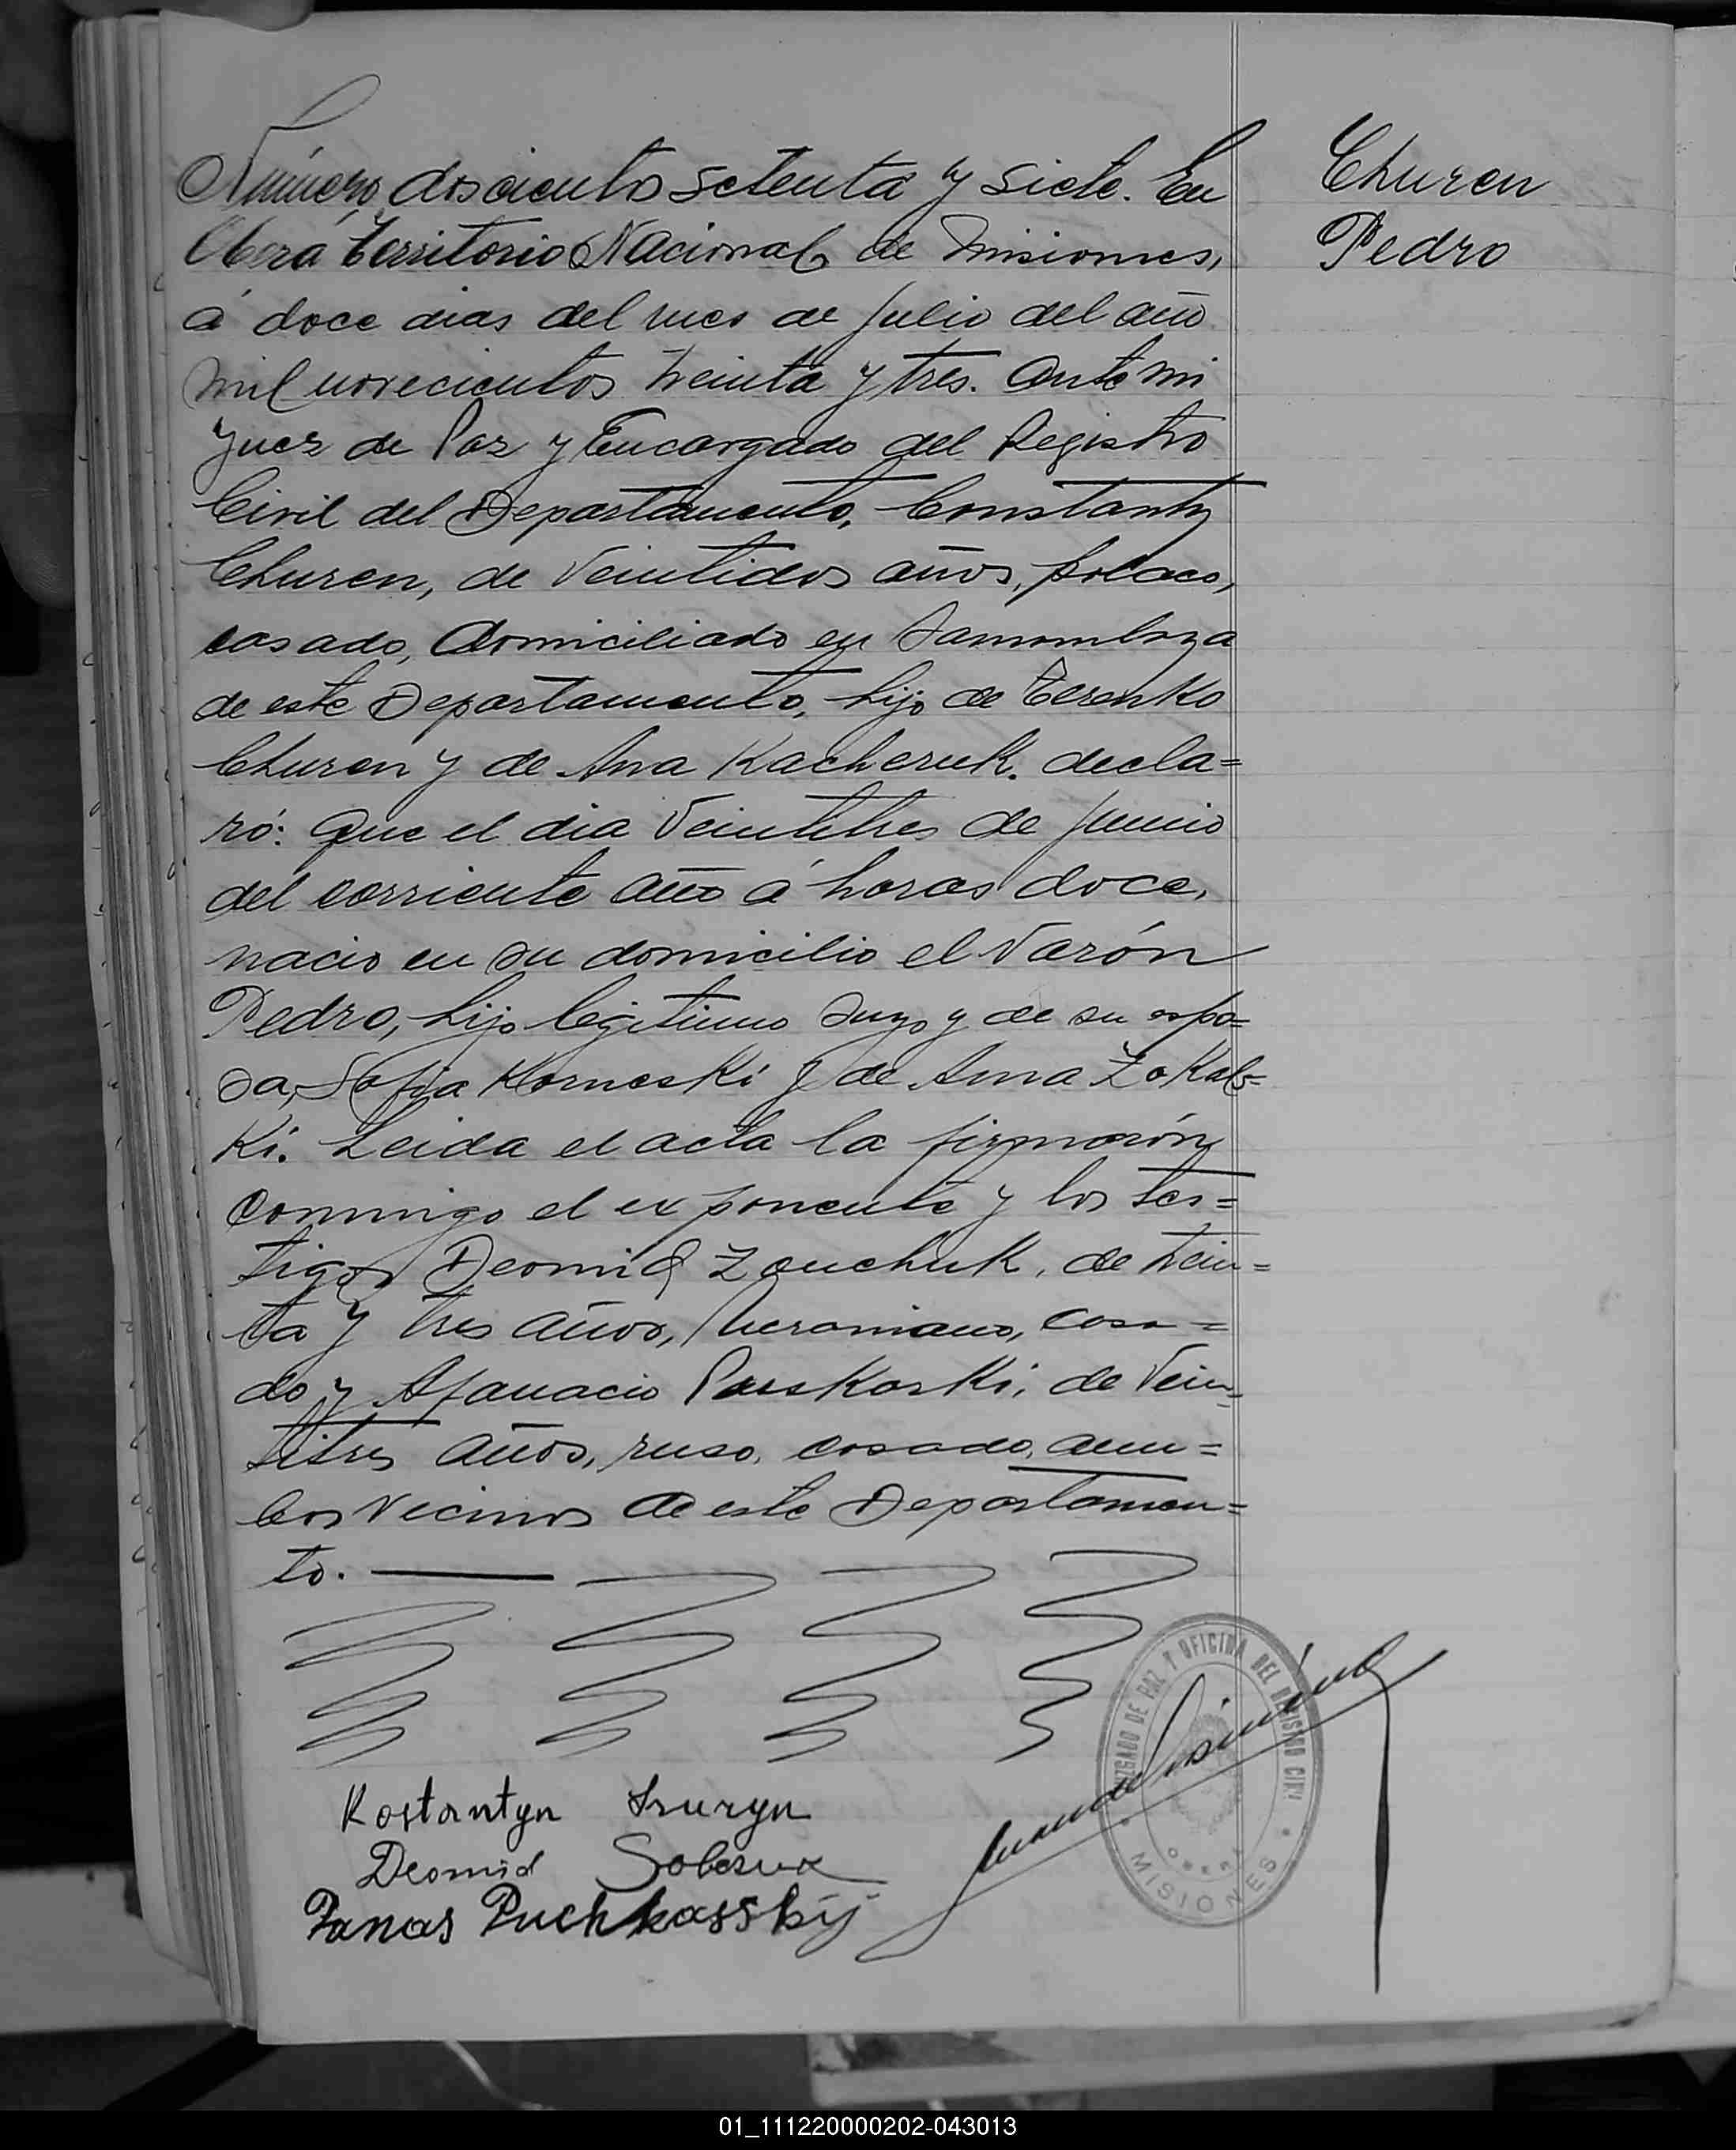 Número doscientos setenta y siete. En
Oberá Territorio Nacional de Misiones,
á doce dias del mes de Julio del año
mil novecientos treinta y tres. Ante mi
Juez de Paz y Encargado del Registro
Civil del Departamento, Constanty
Churen, de Veintidos años, polaco,
casado, domiciliado en
de este Departamento, hijo de Terenko
Churen y de Ana Kacheruk. decla=
ró: Que el dia Veintitres de Junio
del corriente año á horas doce,
nacio en su domicilio el Varón
Pedro, hijo legitimo suyo y de su espo=
sa, Sofia Korneski y de Anna Zakals=
ki. Leida el acta la firmarón
conmigo el exponente y los tes=
tigos Deomid Zouchuk, de trein=
ta y tres años, Ucraniano, casa=
do y Afanacio Puskaski, de Vein=
titres años, ruso, casado, am=
bos Vecinos de este Departamen=
to.
Churen
Pedro
JUZGADO DE PAZ Y OFICINA DEL REGISTRO CIVIL
OBERÁ
MISIONES
Kostantyn
Deomid
Panas Puchkasskij
01_111220000202-043013